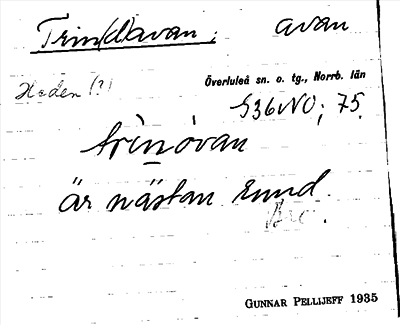 Trin(d)avan; avan
Heden (?)
Överluleå sn. o. tg., Norrb. län
S36NO; 75.
trìnóvan
är nästan rund.
GUNNAR PELLIJEFF 1935